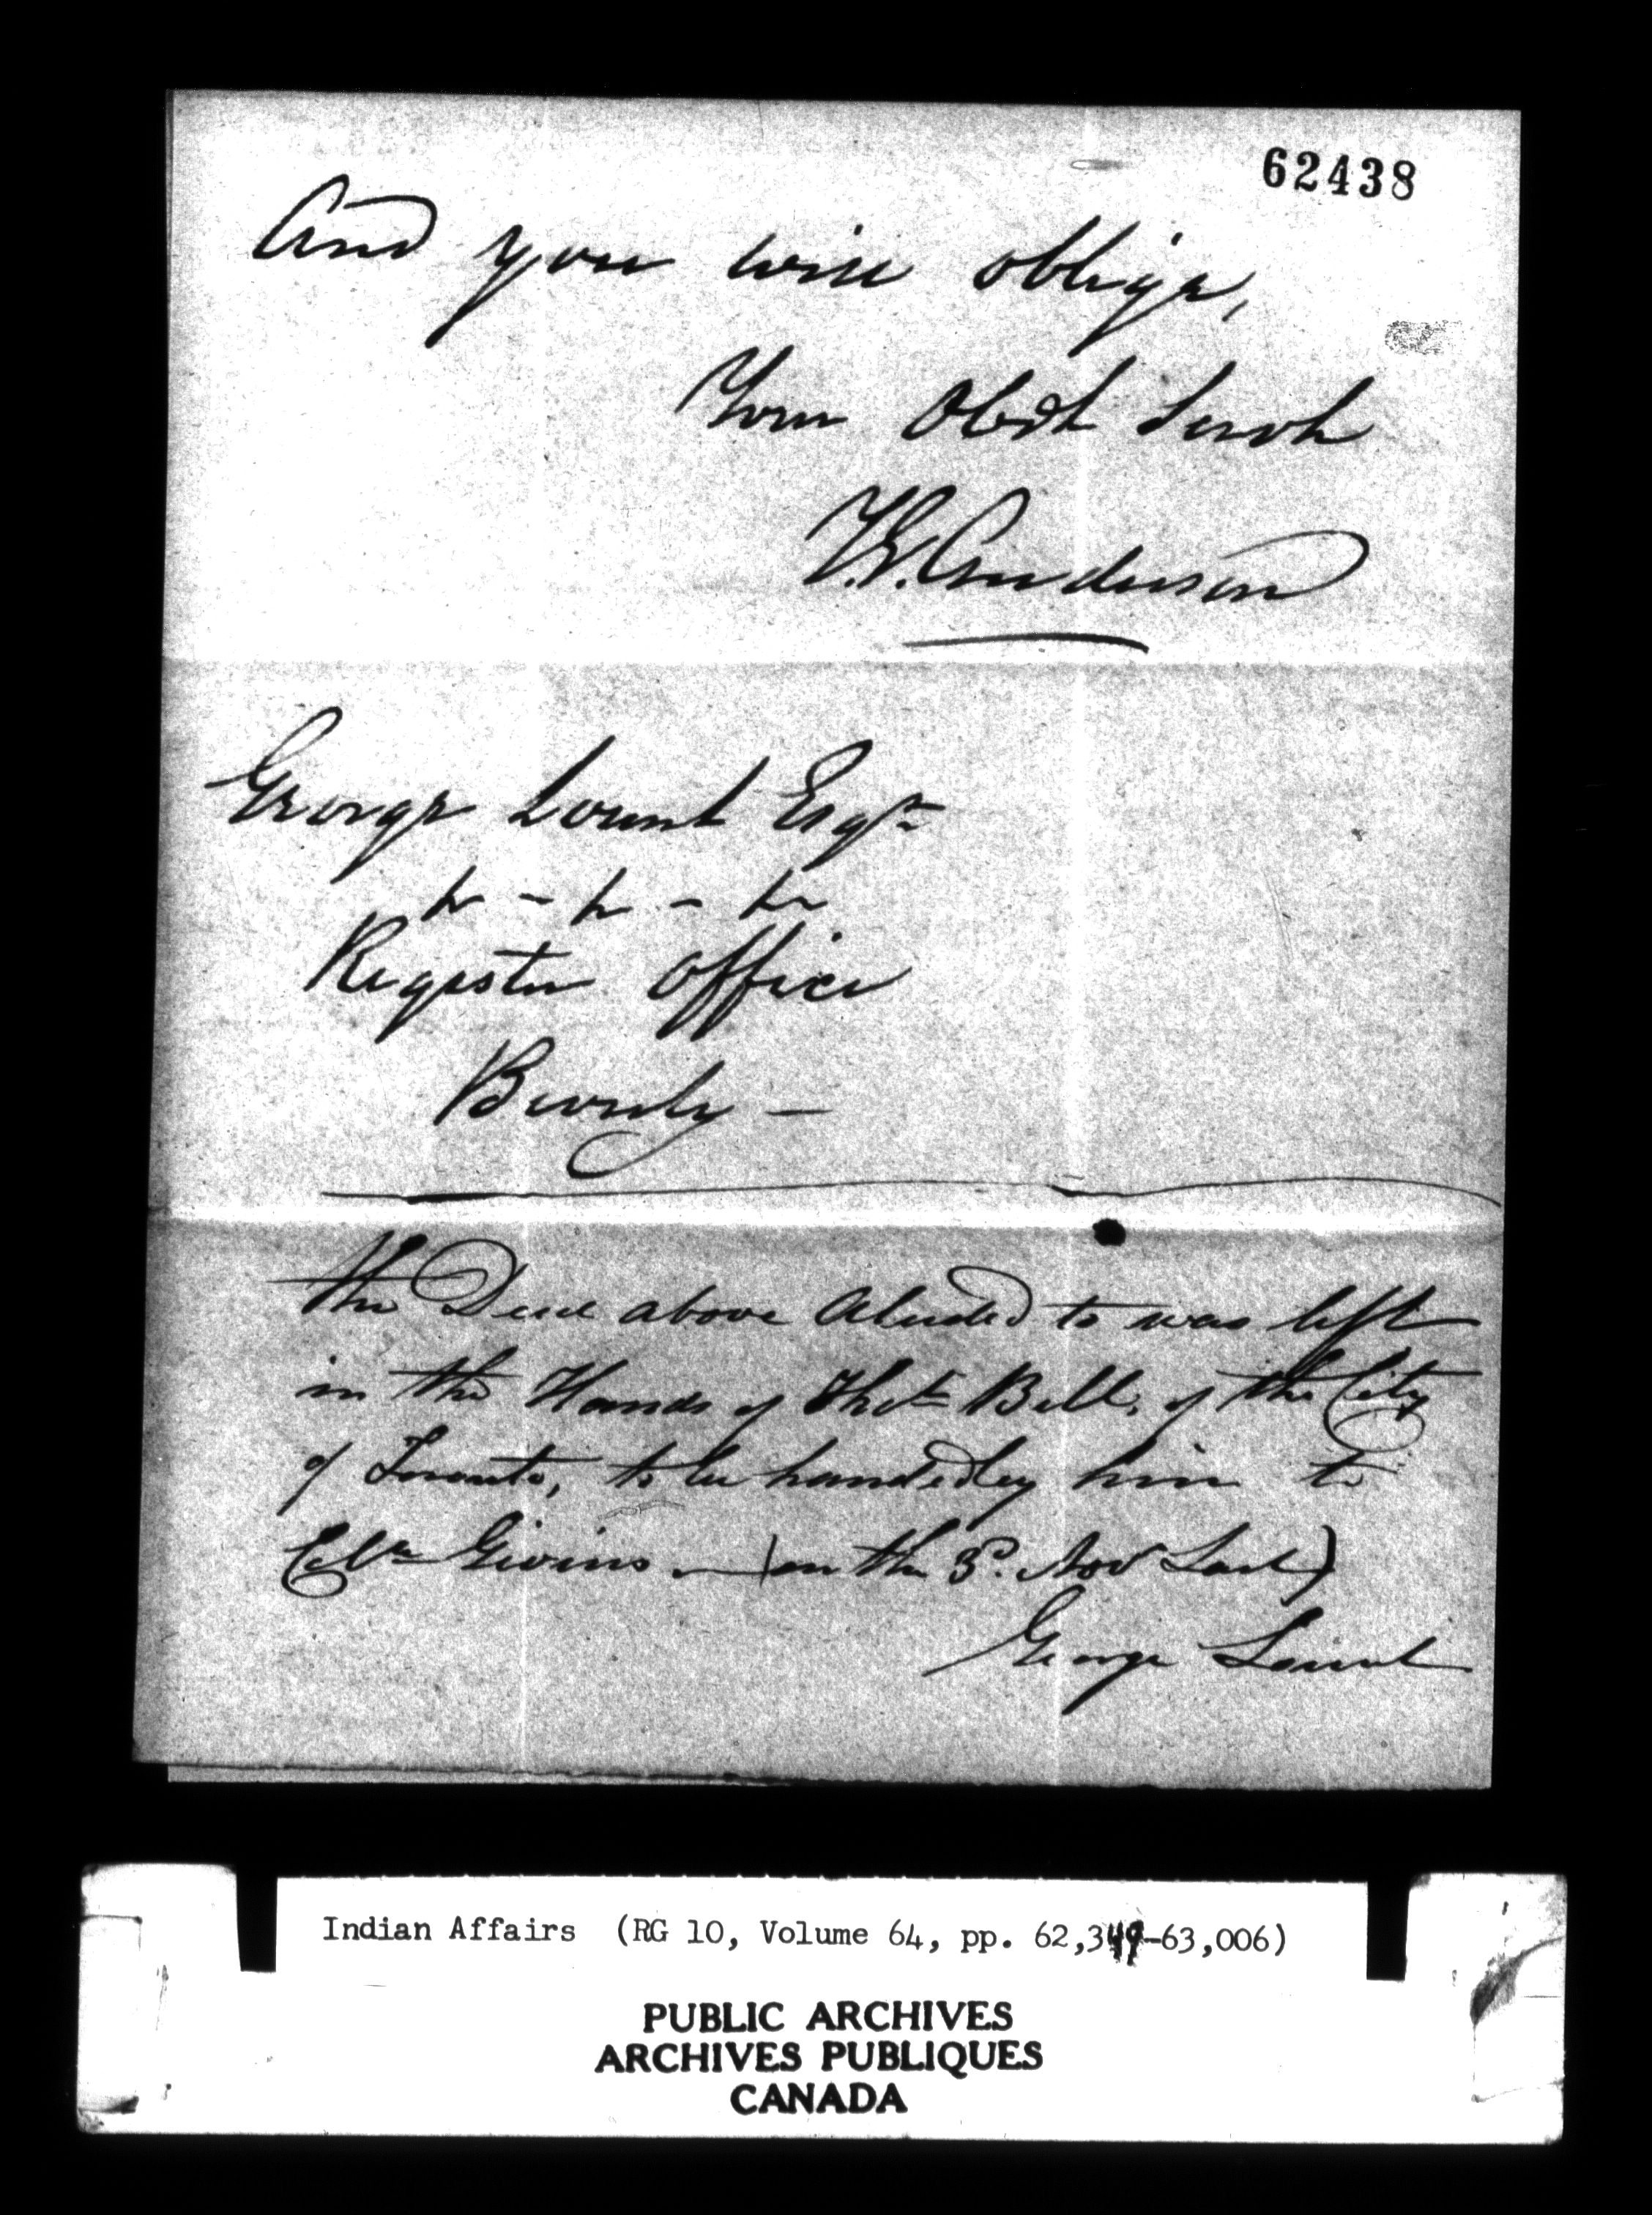 62438
And you will oblige,
Your Obdt Servt
T.G. Anderson
George Lount Esqr
Register Office
Beverly —
The Deed above Aluded to was left
in the Hands of Thos Bell, of the City
of Toronto, to be handed by him to
Coln Givins — (on the 3d. Nov Last)
George Lount
Indian Affairs (RG 10, Volume 64, pp. 62,349-63,006)
PUBLIC ARCHIVES
ARCHIVES PUBLIQUES
CANADA